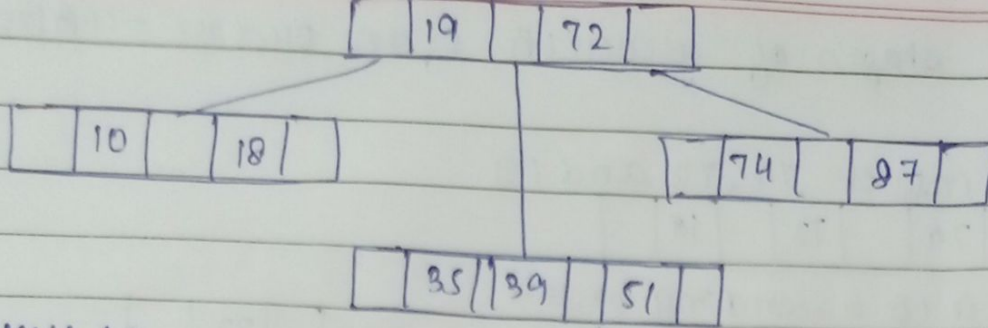 19 72
10 18
74 87
35 39 51